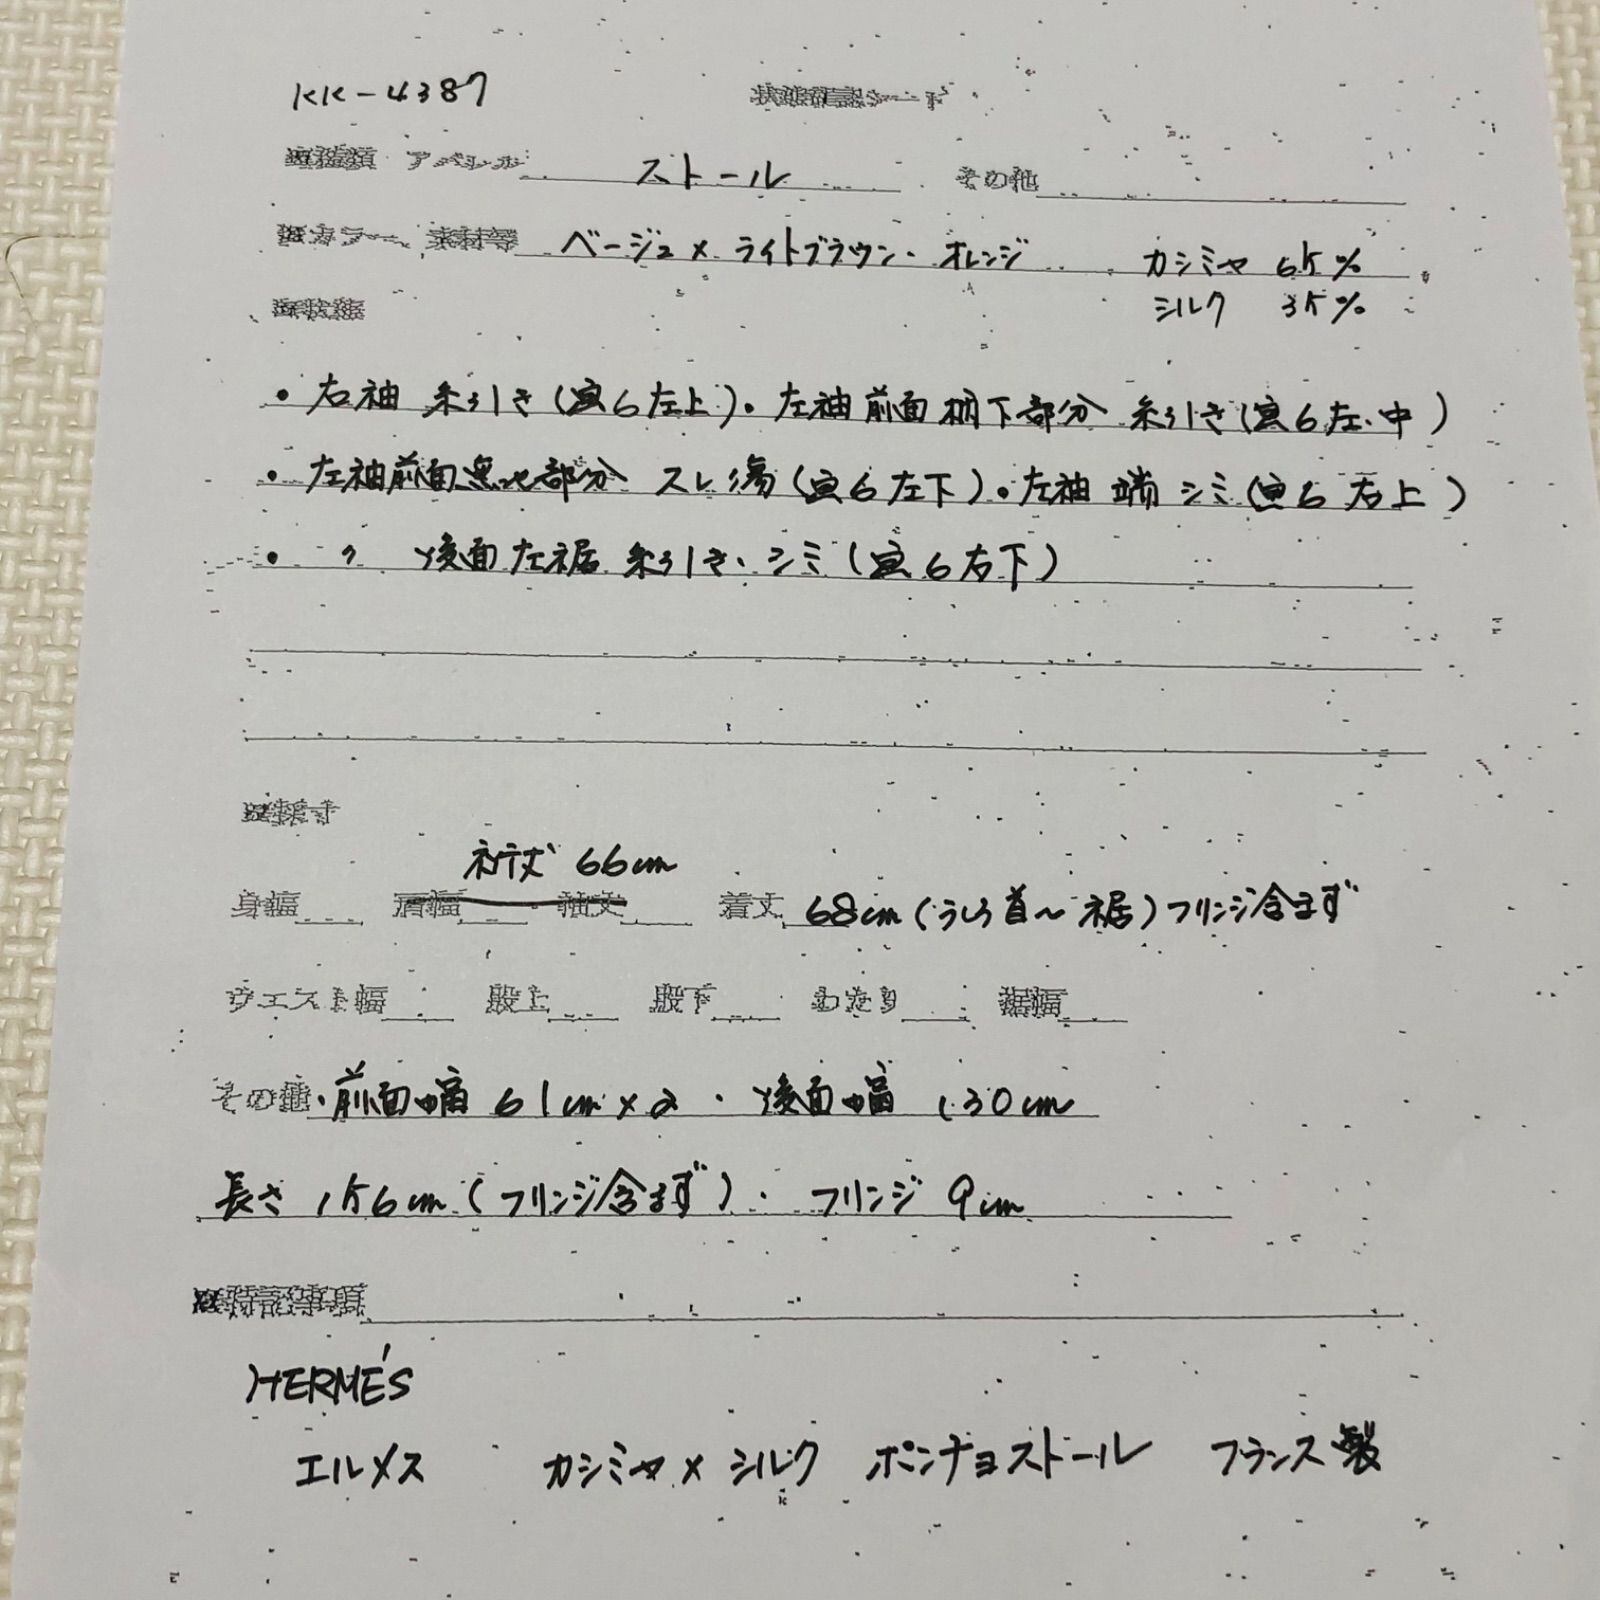 KK-4387 状態確認シート
※種類 アパレル ストール その他
※カラー、素材等 ベージュ×ライトブラウン・オレンジ カシミヤ 65%
シルク 35%
※状態
・右袖 糸引き(写6左上)・左袖前面柄下部分 糸引き(写6左・中)
・左袖前面無地部分 スレ傷(写6左下)・左袖 端 シミ(写6右上)
・〃 後面左裾 糸引き・シミ(写6右下)
※採寸
裄丈 66cm
身幅 肩幅 袖丈 着丈 68cm(うしろ首〜裾)フリンジ含まず
ウエスト幅 股上 股下 わたり 裾幅
その他・前面幅 61cm×2・後面幅 130cm
長さ 156cm(フリンジ含まず)・フリンジ 9cm
※特記事項
HERMÈS
エルメス カシミヤ×シルク ポンチョストール フランス製